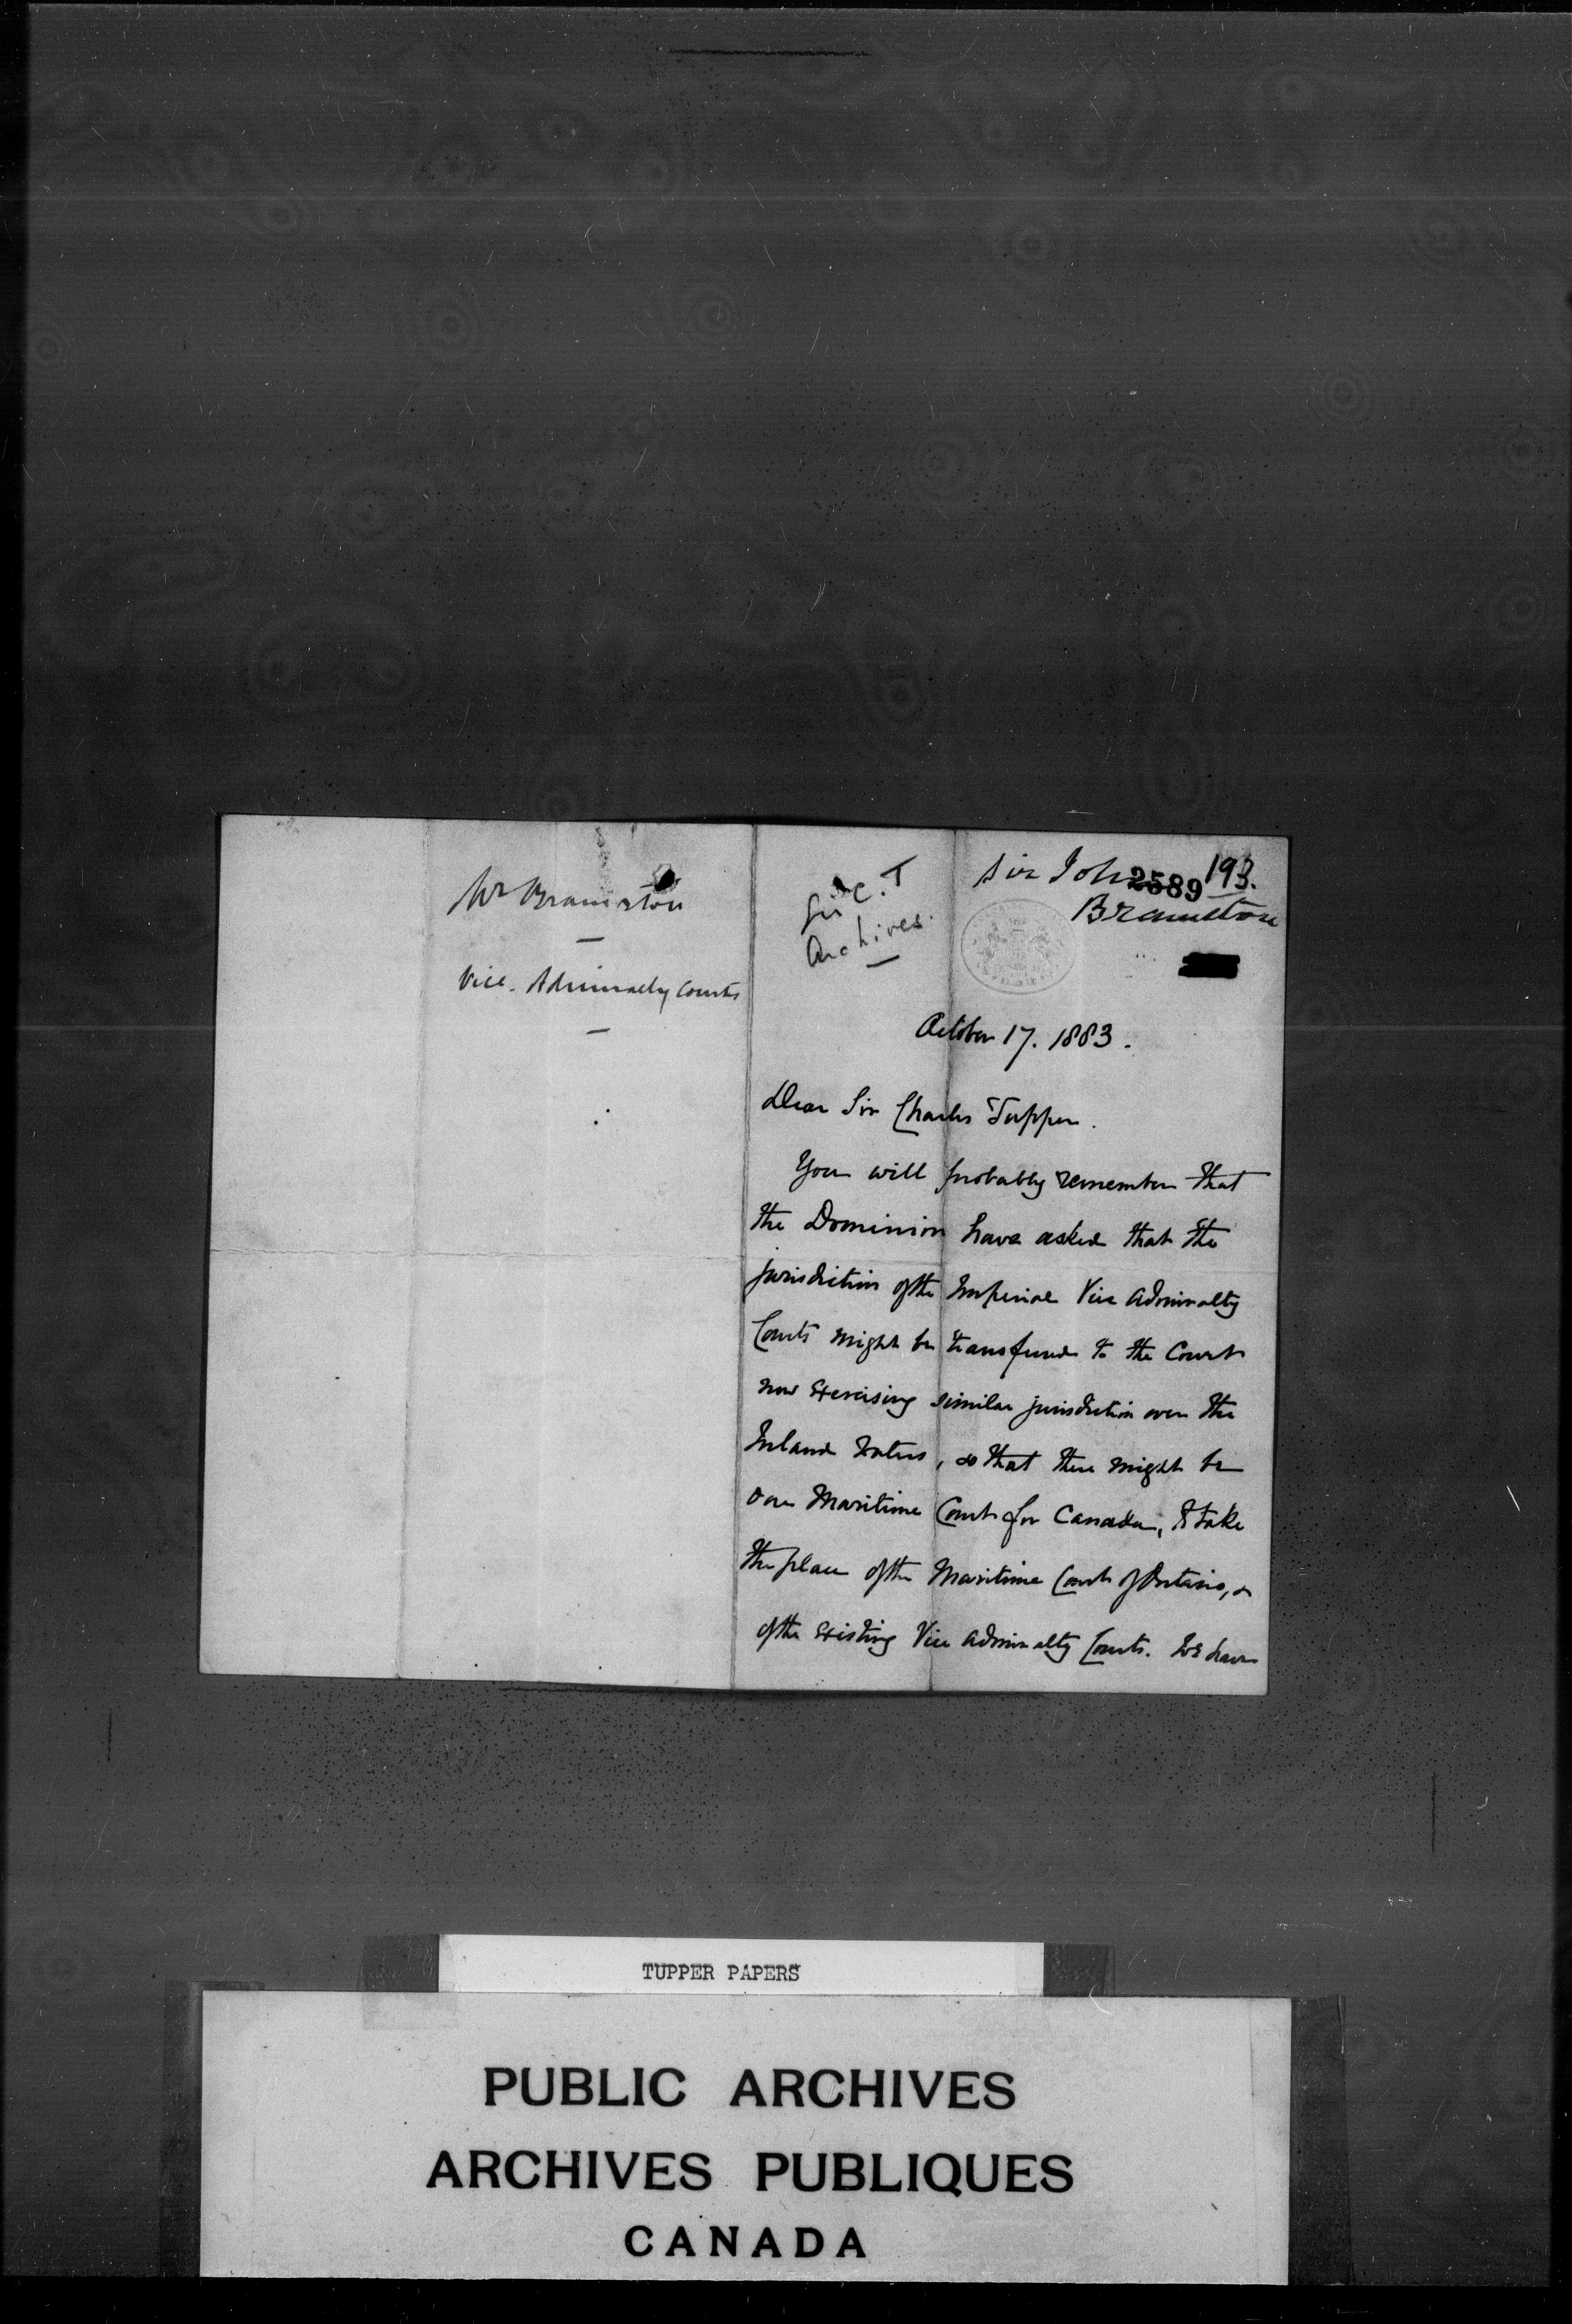 Mr Bramston
Vice. Admiralty Courts
Sir C. T
Archives.
Sir John 2589 193.
Bramston
October 17. 1883.
Dear Sir Charles Tupper.
You will probably remember that
the Dominion have asked that the
jurisdiction of the Imperial Vice Admiralty
Courts might be transferred to the Court
now exercising similar jurisdiction over the
Inland Waters, so that there might be
one Maritime Court for Canada, to take
the place of the Maritime Court of Ontario, &
of the existing Vice Admiralty Courts. We have
TUPPER PAPERS
PUBLIC ARCHIVES
ARCHIVES PUBLIQUES
CANADA